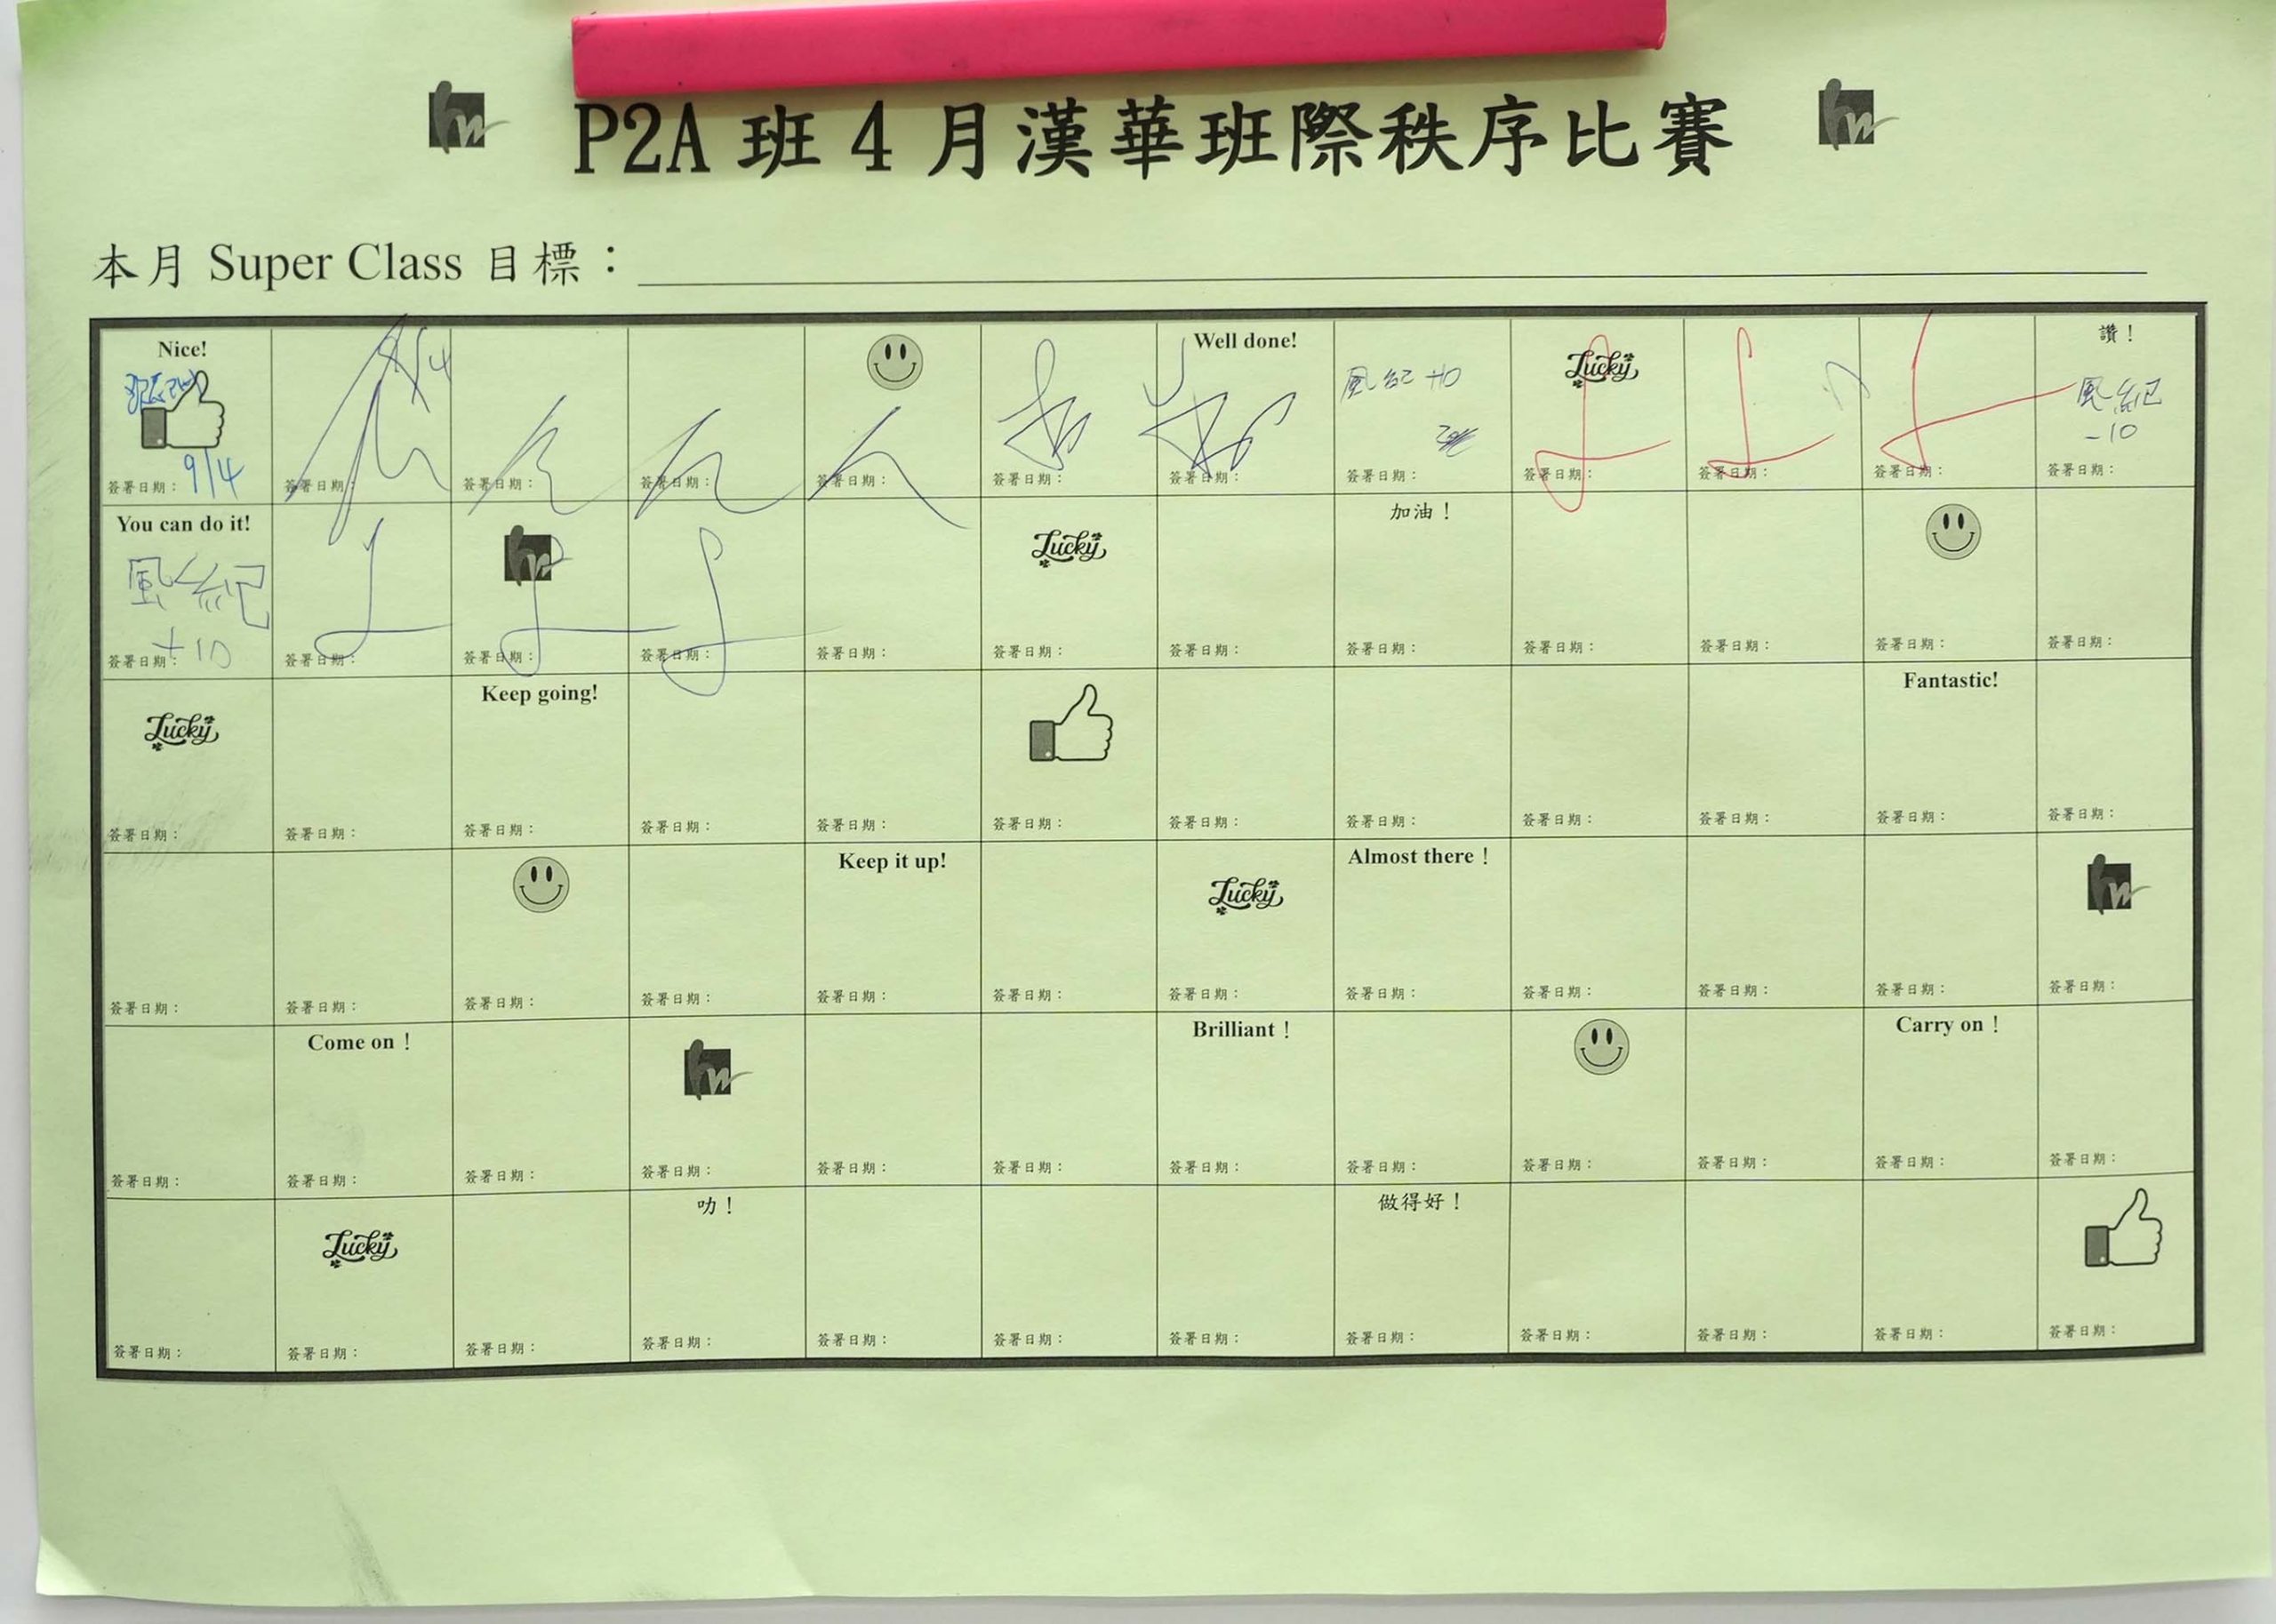 P2A 班 4 月漢華班際秩序比賽
本月 Super Class 目標：
Nice!
9/4
簽署日期：
8/4
簽署日期：
簽署日期：
簽署日期：
簽署日期：
簽署日期：
Well done!
簽署日期：
風紀 +10
簽署日期：
Lucky
簽署日期：
簽署日期：
簽署日期：
讚！
風紀
-10
簽署日期：
You can do it!
風紀
+10
簽署日期：
簽署日期：
hw
簽署日期：
簽署日期：
簽署日期：
Lucky
簽署日期：
簽署日期：
加油！
簽署日期：
簽署日期：
簽署日期：
簽署日期：
簽署日期：
Lucky
簽署日期：
簽署日期：
Keep going!
簽署日期：
簽署日期：
簽署日期：
簽署日期：
簽署日期：
簽署日期：
簽署日期：
簽署日期：
Fantastic!
簽署日期：
簽署日期：
簽署日期：
簽署日期：
簽署日期：
簽署日期：
Keep it up!
簽署日期：
簽署日期：
Lucky
簽署日期：
Almost there！
簽署日期：
簽署日期：
簽署日期：
簽署日期：
hw
簽署日期：
簽署日期：
Come on！
簽署日期：
簽署日期：
hw
簽署日期：
簽署日期：
簽署日期：
Brilliant！
簽署日期：
簽署日期：
簽署日期：
簽署日期：
Carry on！
簽署日期：
簽署日期：
簽署日期：
Lucky
簽署日期：
簽署日期：
叻！
簽署日期：
簽署日期：
簽署日期：
簽署日期：
做得好！
簽署日期：
簽署日期：
簽署日期：
簽署日期：
簽署日期：